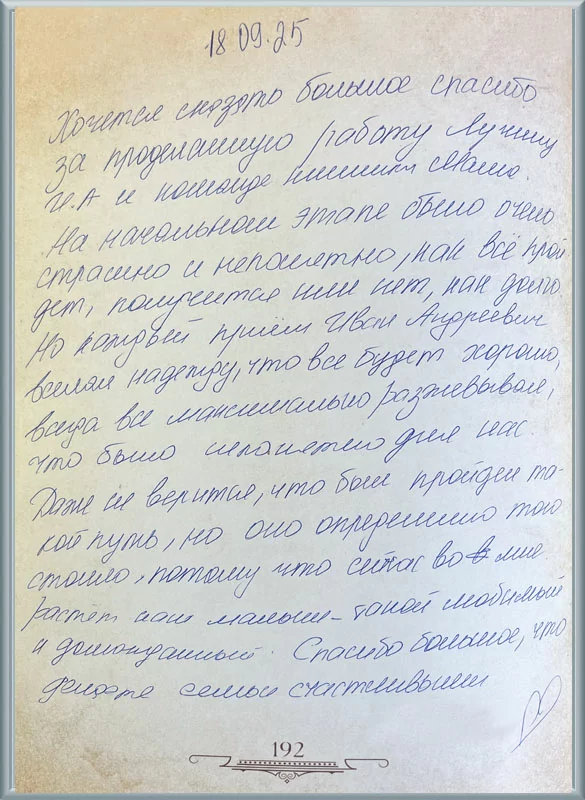 18.09.25
Хочется сказать большое спасибо
за проделанную работу Лучину
И.А и команде клиники Мама.
На начальном этапе было очень
страшно и непонятно, как всё прой
дет, получится или нет, как долго
Но каждый приём Иван Андреевич
вселял надежду, что все будет хорошо,
всегда все максимально разжевывал,
что было непонятно для нас.
Даже не верится, что был пройден та-
кой путь, но оно определенно того
стоило, потому что сейчас во мне
растет наш малыш - такой любимый
и долгожданный. Спасибо большое, что
делаете семьи счастливыми
192